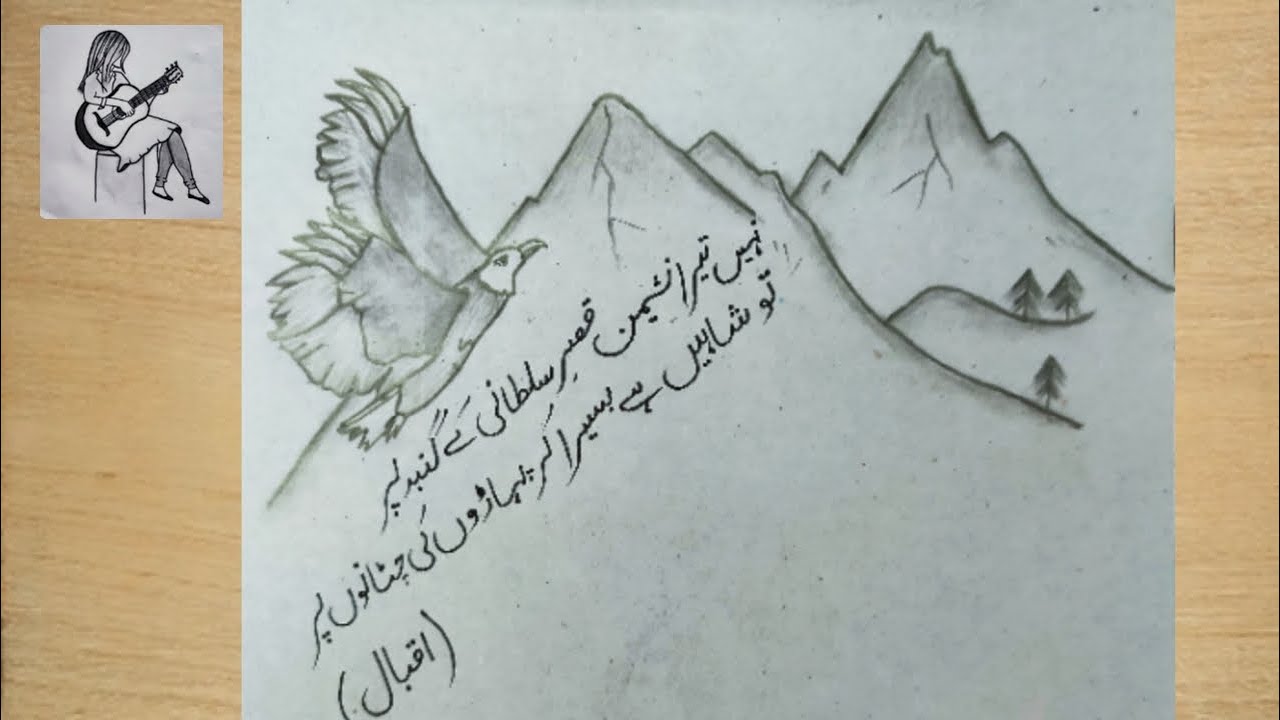 نہیں تیرا نشیمن قصرِ سلطانی کے گنبد پر
تو شاہیں ہے بسیرا کر پہاڑوں کی چٹانوں پر
(اقبال)